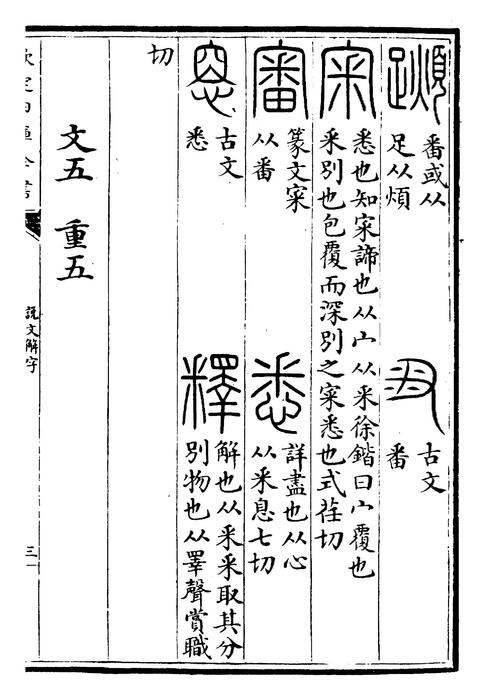 番或从
足从煩
古文
番
宷
悉也知宷諦也从宀从釆徐鍇曰宀覆也
釆別也包覆而深別之宷悉也式荏切
審
篆文宷
从番
悉
詳盡也从心
从釆息七切
古文
悉
釋
解也从釆釆取其分
別物也从睪聲賞職
切
文五　重五
欽定四庫全書
說文解字
三